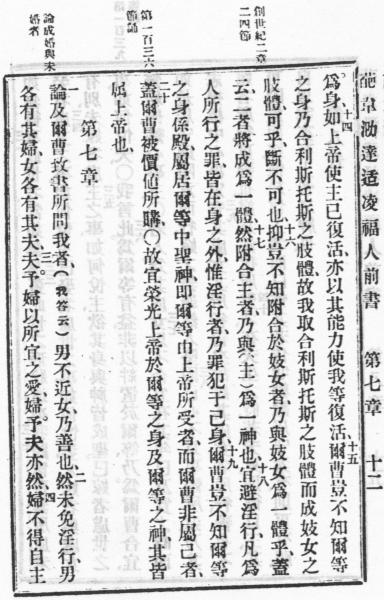 葩韋泐達适凌福人前書 第七章 十二
爲身、十四如上帝使主已復活、亦以其能力使我等復活、十五爾曹豈不知爾等
之身乃合利斯托斯之肢體、故我取合利斯托斯之肢體而成妓女之
肢體可乎、斷不可也、十六抑豈不知附合於妓女者、乃與妓女爲一體乎、蓋
云二者將成爲一體、十七然附合主者、乃與(主)爲一神也、十八宜避淫行、凡爲
人所行之罪皆在身之外、惟淫行者、乃罪犯于己身、十九爾曹豈不知爾等
之身係殿、屬居爾等中聖神、即爾等由上帝所受者、而爾曹非屬己者、
二十蓋爾曹被價値所購、〇故宜榮光上帝於爾等之身及爾等之神、其皆
属上帝也、
第七章
一論及爾曹致書所問我者、(我答云)男不近女乃善也、二然未免淫行、男
各有其婦、女各有其夫、三夫予婦以所宜之愛、婦予夫亦然、四婦不得自主
創世紀二章
二四節
第一百三六
節誦
論成婚與未
婚者